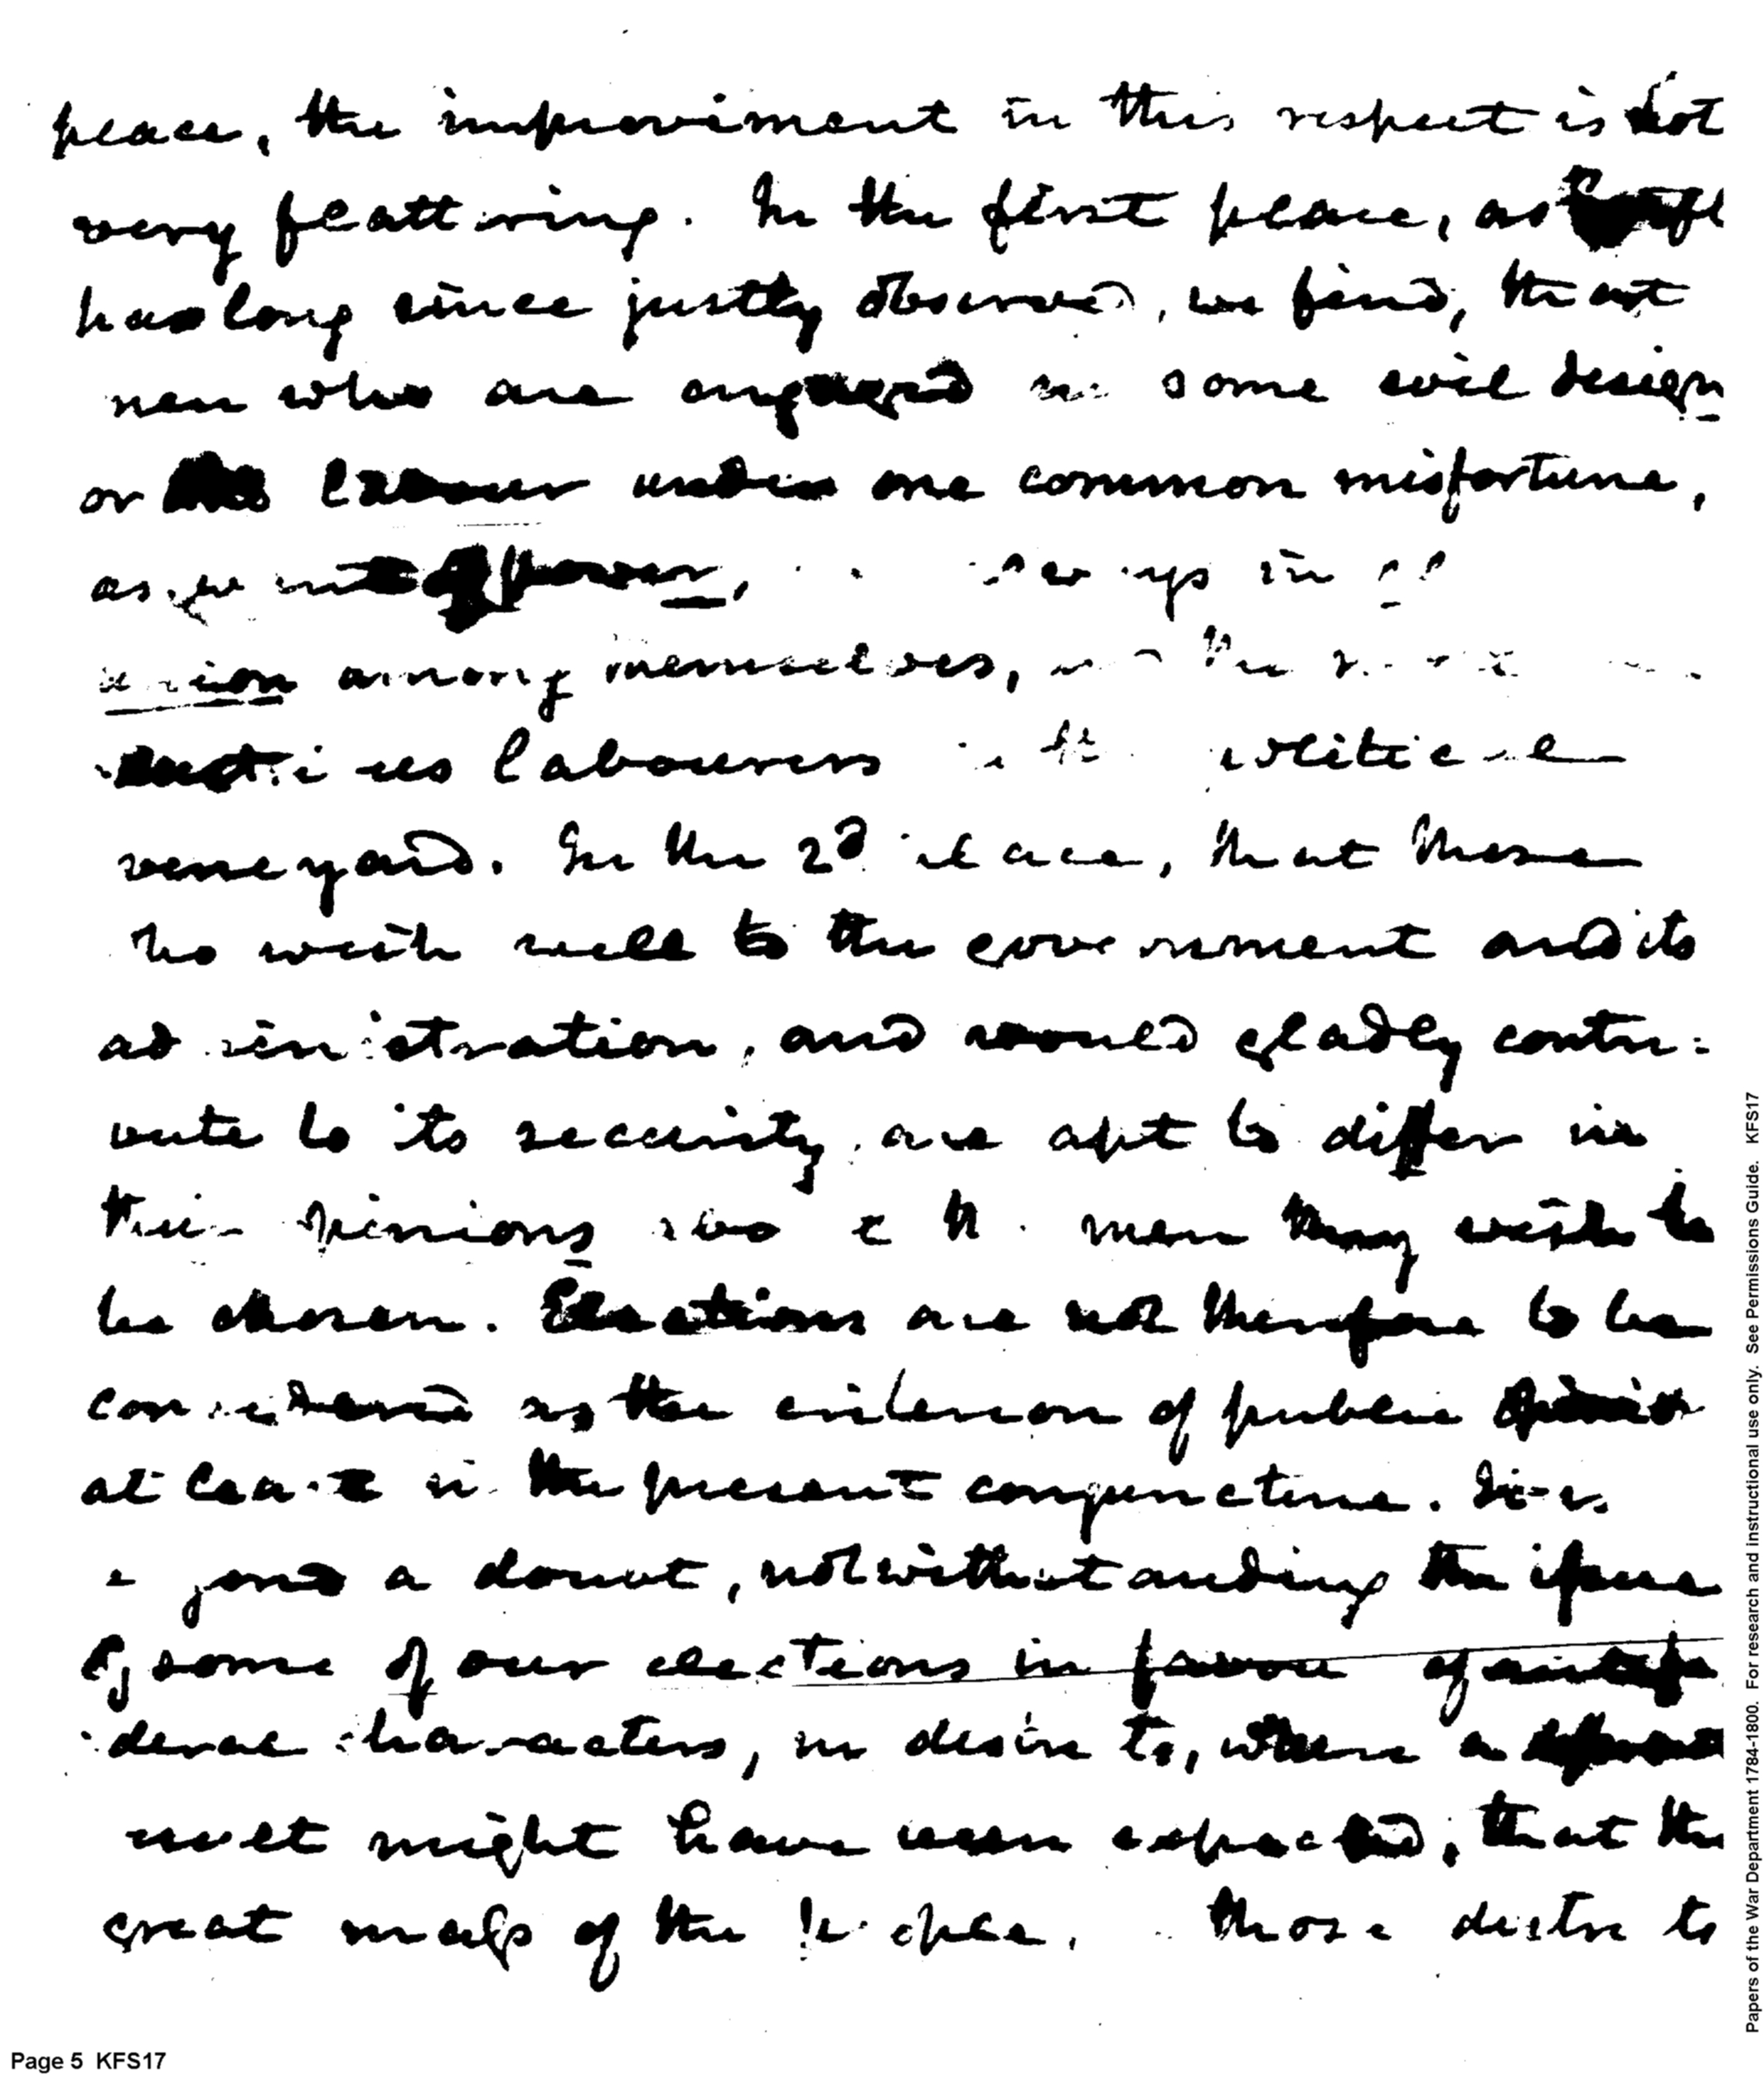 peace, the improviment in this respect is not
very flattering. In the first place, as
has long since justly observed, we find, that
men who are engaged in some evil design
or labour under one common misfortune,
as want of power, always in
union among themselves, and the
industrious labourers in the political
vineyard. In the 2d place, that those
who wish well to the government and its
administration, and would gladly contri=
bute to its security, are apt to differ in
their opinions as to the men they wish to
be chosen. Elections are not therefore to be
considered as the criterion of public opinion
at least in the present conjuncture. It is
beyond a doubt, notwithstanding the issue
of some of our elections in favour of antife
deral characters, in desire to, where a different
result might have been expected, that the
great mass of the people. those districts
Papers of the War Department 1784-1800. For research and instructional use only. See Permissions Guide. KFS17
Page 5 KFS17